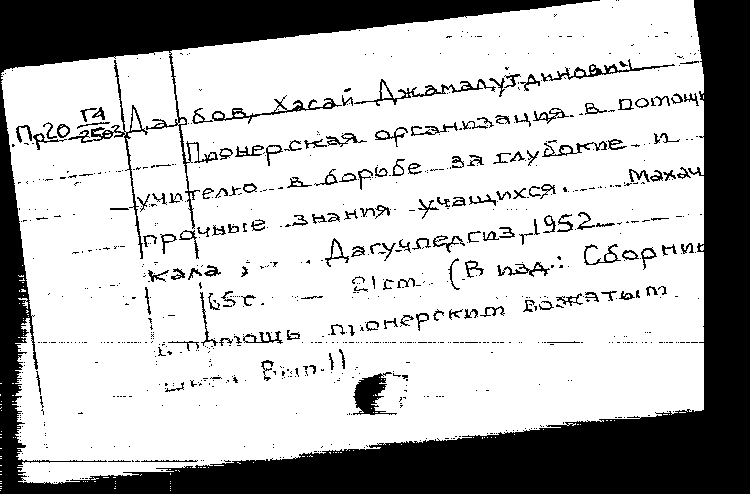 Пр20 Г4/2503 Дарбов, Хасай Джамалутдинович
Пионерская организация в помощь
учителю в борьбе за глубокие и
прочные знания учащихся. Махач
кала, Дагучпедгиз, 1952
65с. — 21cm (В изд.: Сборник
в помощь пионерским вожатым
Вып. II